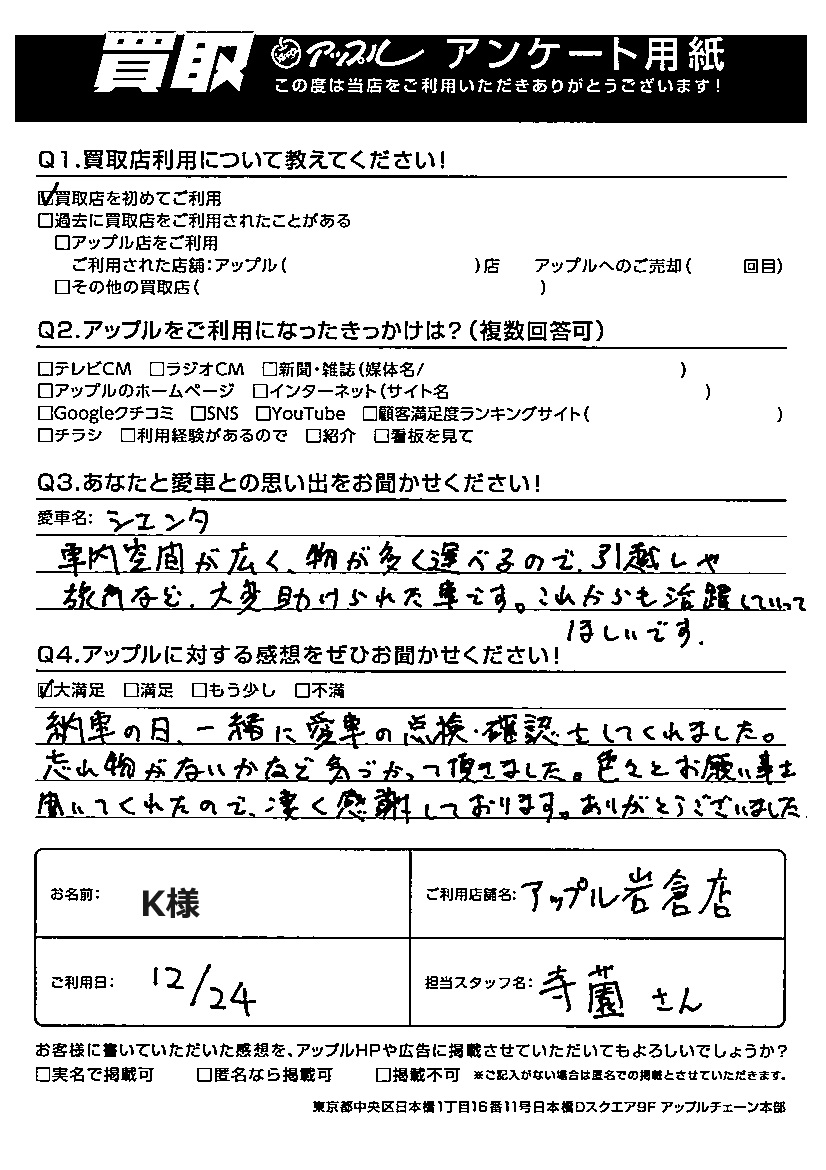 買取 アップル アンケート用紙
この度は当店をご利用いただきありがとうございます!
Q1.買取店利用について教えてください!
☑買取店を初めてご利用
□過去に買取店をご利用されたことがある
□アップル店をご利用
ご利用された店舗:アップル( )店 アップルへのご売却( 回目)
□その他の買取店( )
Q2.アップルをご利用になったきっかけは?(複数回答可)
□テレビCM □ラジオCM □新聞・雑誌(媒体名/ )
□アップルのホームページ □インターネット(サイト名 )
□Googleクチコミ □SNS □YouTube □顧客満足度ランキングサイト( )
□チラシ □利用経験があるので □紹介 □看板を見て
Q3.あなたと愛車との思い出をお聞かせください!
愛車名: シエンタ
車内空間が広く、物が多く運べるので、引越しや
旅行など、大変助けられた車です。これからも活躍していって
ほしいです.
Q4.アップルに対する感想をぜひお聞かせください!
☑大満足 □満足 □もう少し □不満
納車の日、一緒に愛車の点検・確認をしてくれました。
忘れ物がないかなど気づかって頂きました。色々とお願い事を
聞いてくれたので、凄く感謝しております。ありがとうございました
お名前: K様 ご利用店舗名: アップル岩倉店
ご利用日: 12/24 担当スタッフ名: 寺薗 さん
お客様に書いていただいた感想を、アップルHPや広告に掲載させていただいてもよろしいでしょうか?
□実名で掲載可 □匿名なら掲載可 □掲載不可 ※ご記入がない場合は匿名での掲載とさせていただきます。
東京都中央区日本橋1丁目16番11号日本橋Dスクエア9F アップルチェーン本部